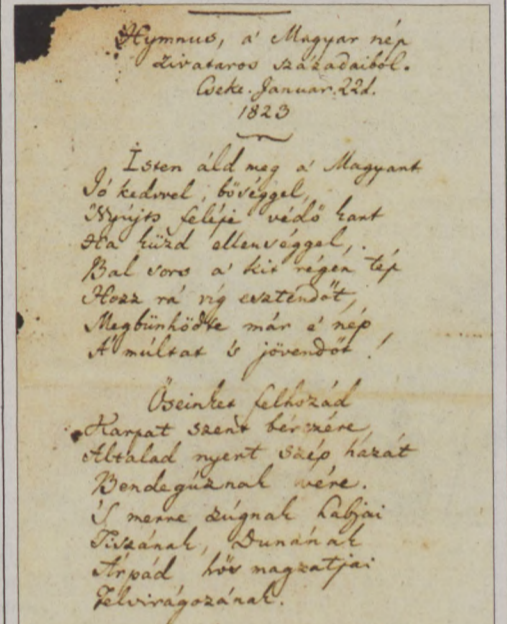 Hymnus, a' Magyar nép
zivataros századaiból.
Cseke. Januar. 22d.
1823
Isten áld meg a' Magyart
Jó kedvvel bőséggel,
Nyújts féléje védő kart
Ha küzd ellenséggel,
Bal sors a' kit régen tép
Hozz rá víg esztendőt,
Megbünhödte már e' nép
A' múltat 's jövendőt!
Őseinket felhozád
Kárpát szent bérczére,
Általad nyert szép hazát
Bendegúznak vére.
'S merre zúgnak habjai
Tiszának, Dunának
Árpád hős magzatjai
Felvirágozának.